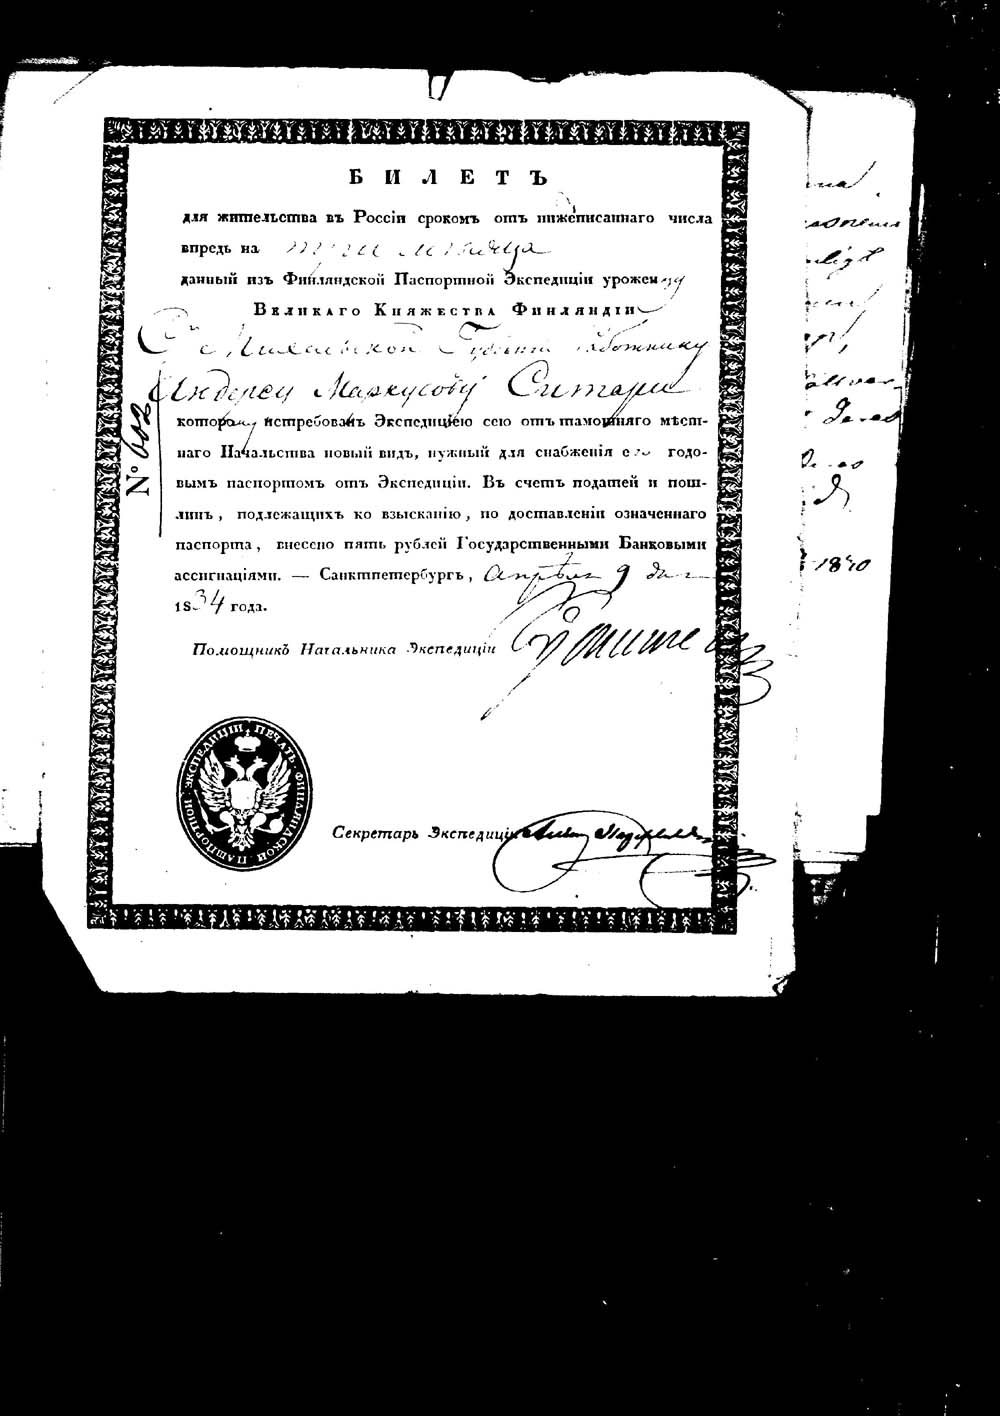 БИЛЕТЪ
для жительства въ Россіи срокомъ отъ нижеписаннаго числа
впредь на три месяца
данный изъ Финляндской Паспортной Экспедиціи уроженцу
Великаго Княжества Финляндіи
Губерніи работнику
Андерсу Маркусову Ситари
которому истребованъ Экспедиціею сею отъ тамошняго мѣст-
наго Начальства новый видъ, нужный для снабженія его годо-
вымъ паспортомъ отъ Экспедиціи. Въ счетъ податей и пош-
линъ, подлежащихъ ко взысканію, по доставленіи означеннаго
паспорта, внесено пять рублей Государственными Банковыми
ассигнаціями. — Санктпетербургъ, Апрѣля 9 дня
1834 года.
Помощникъ Начальника Экспедиціи
Секретарь Экспедиціи
№ 602
ПЕЧАТЬ ФИНЛЯДСКОЙ ПАШПОРТНОЙ ЭКСПЕДИЦІИ
1840